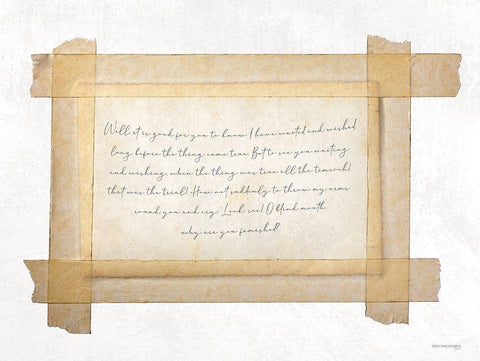 Well, it is good for you to know I have waited and wished
long before the thing came true. But to see you waiting
and wishing, when the thing was true all the time, ah!
that was the trial! How not suddenly to throw my arms
round you and cry, Look, see! O blind mouth,
why are you famished?